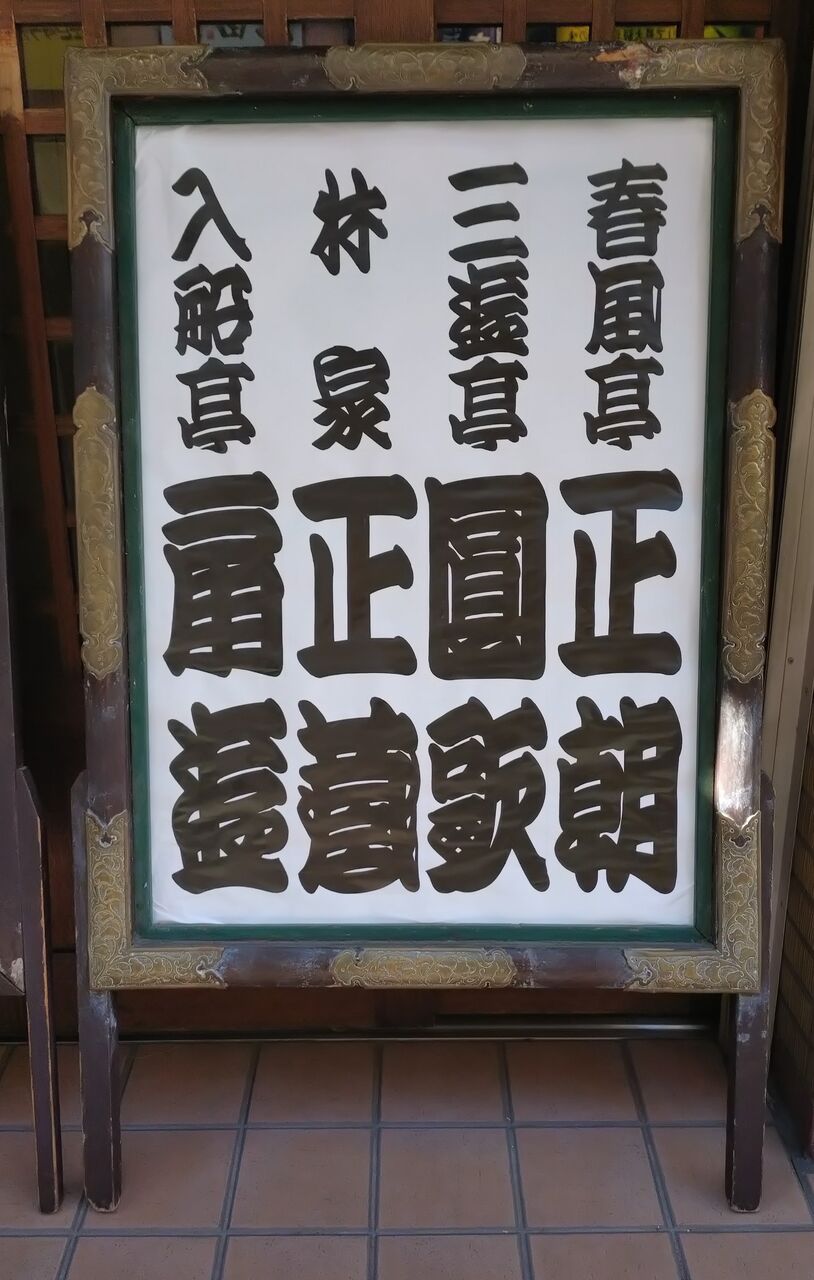 春風亭正朝
三遊亭圓歌
林家正蔵
入船亭扇遊